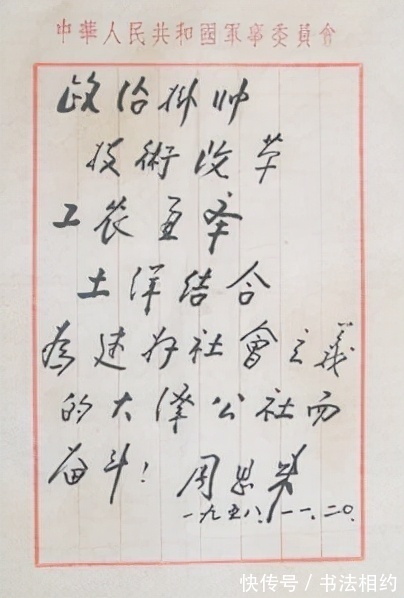 中華人民共和國軍事委員會
政治掛帅
技術改革
工农並举
土洋结合
為建好社會主義
的大澤公社而
奋斗！ 周恩来
一九五八.一一.二〇.
快传号 / 书法相约